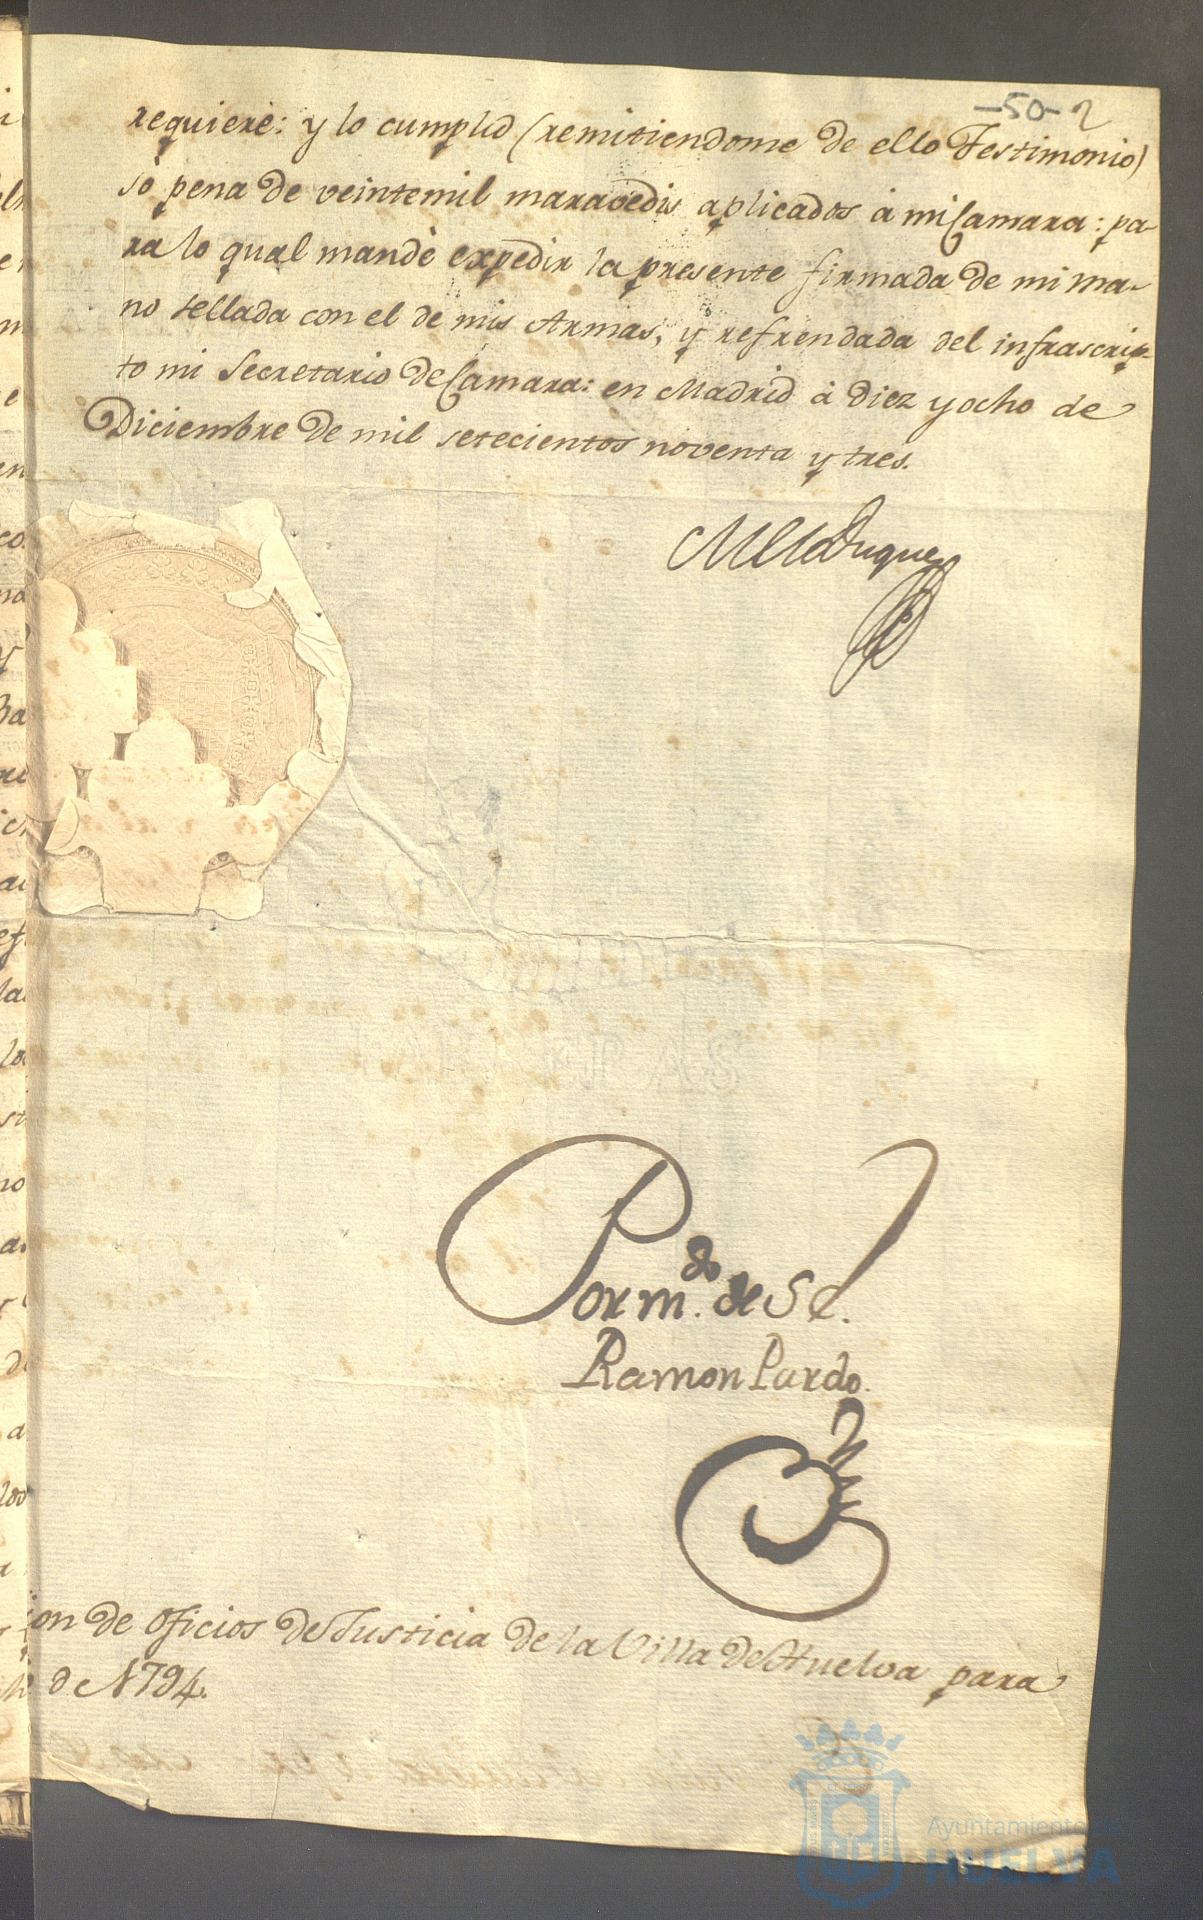 -50- 2
requiere: y lo cumplid (remitiendome de ello Testimonio)
so pena de veintemil maravedis aplicados à mi Camara: pa-
ra lo qual mandè expedir la presente firmada de mi ma-
no sellada con el de mis Armas, y refrendada del infrascrip-
to mi Secretario de Camara: en Madrid à diez y ocho de
Diciembre de mil setecientos noventa y tres.
Duque
Por m.do de S E.
Ramon Pardo.
ion de oficios de Justicia de la Villa de Huelva para
1794.
Ayuntamiento de
HUELVA